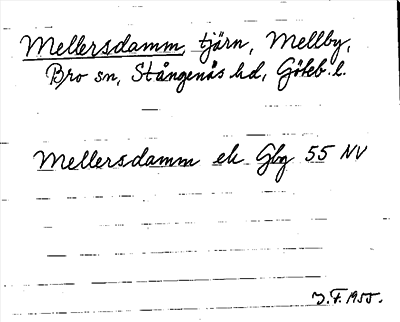 Mellersdamm, tjärn, Mellby,
Bro sn, Stångenäs hd, Göteb. l.
Mellersdamm ek Gbg 55 NV
J.F. 1955.